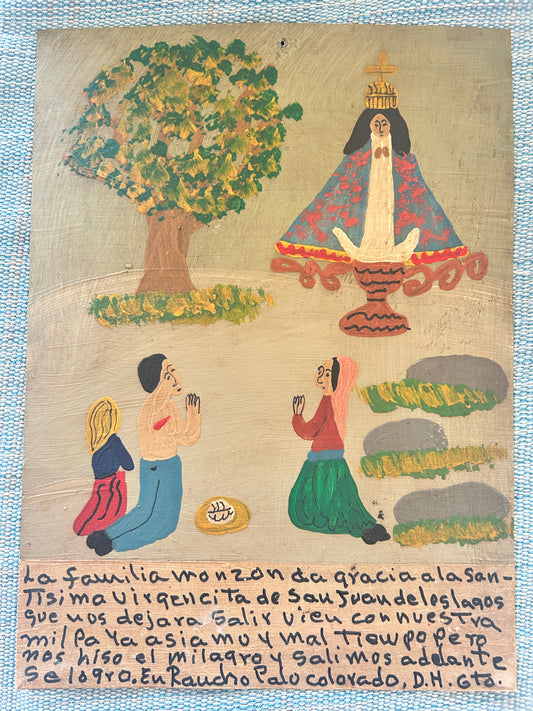 La familia monzon da gracia a la San-
Tisima virgencita de San Juan de los lagos
que nos dejara salir vieu con nuestra
milpa Ya asia muy mal tiempo pero
nos hiso el milagro y salimos adelante
Se logro. En Rancho Palo colorado, D.H. Gto.